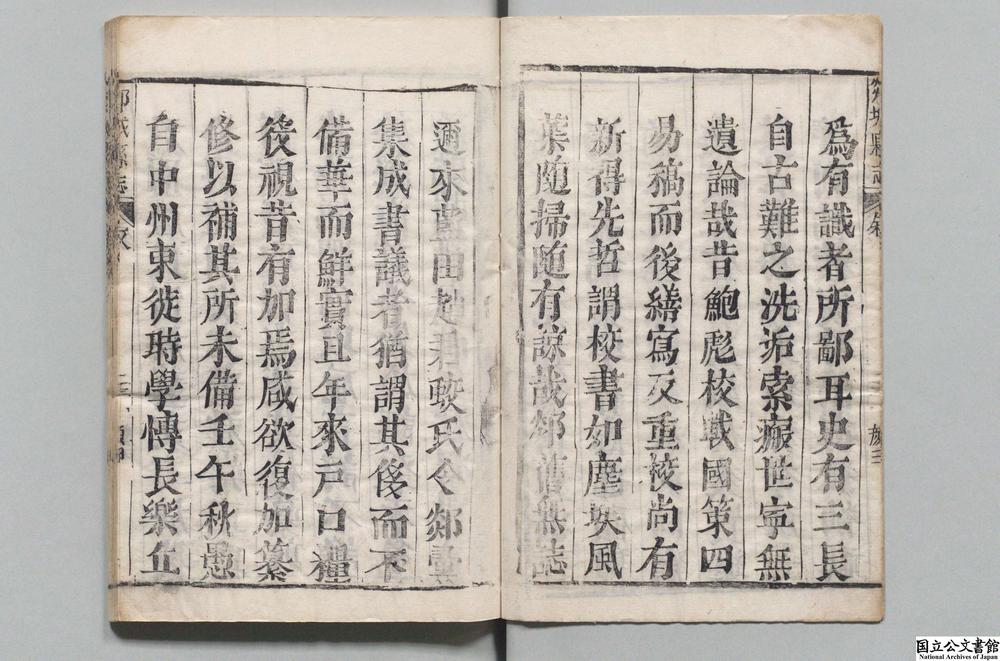 爲有識者所鄙耳史有三長
自古難之洗垢索瘢世寜無
遺論哉昔鮑彪校戰國策四
易稿而後繕寫及重校尚有
新得先哲謂校書如塵埃風
葉随掃随有諒哉郯舊無誌
邇來藍田趙君蛟氏令郯彚
集成書議者猶謂其侈而不
備華而鮮實且年來戸口糧
後視昔有加焉咸欲復加纂
修以補其所未備壬午秋愚
自中州東徙時學博長樂丘
国立公文書館
National Archives of Japan